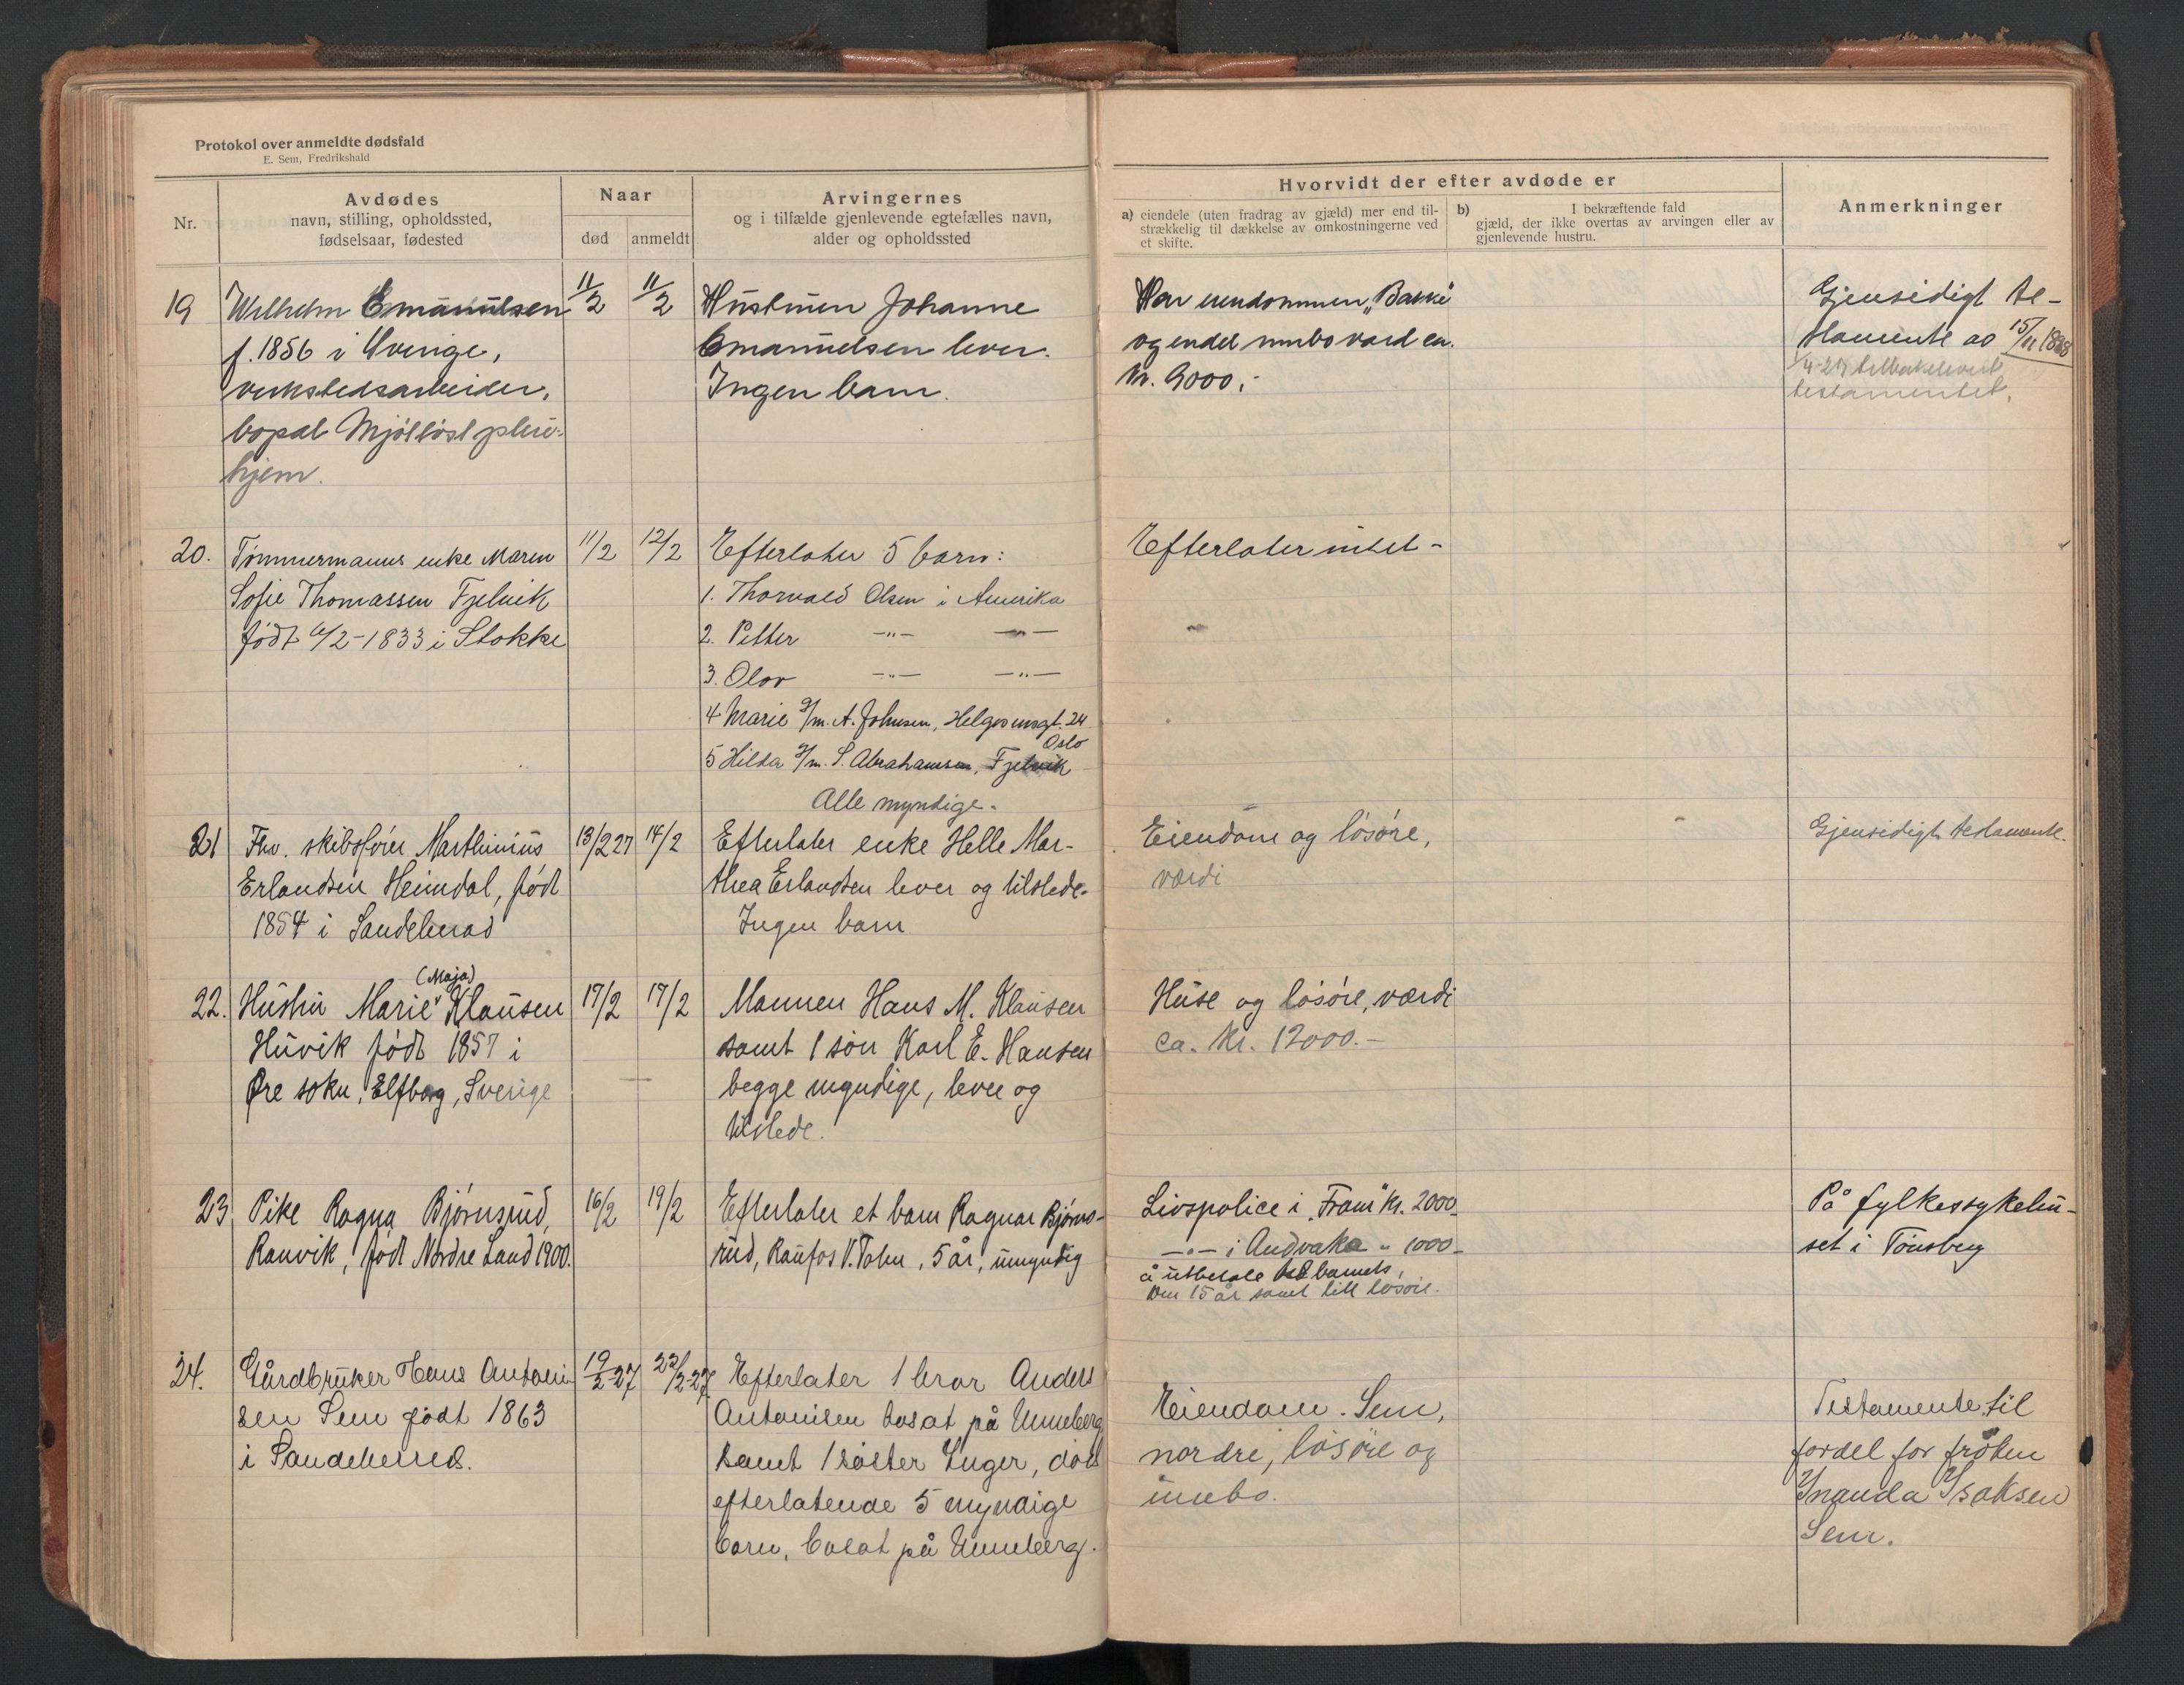 Protokol over anmeldte dødsfald
E. Sem, Fredrikshald
Nr.
Avdødes
navn, stilling, opholdssted,
fødselsaar, fødested
Naar
død anmeldt
Arvingernes
og i tilfælde gjenlevende egtefælles navn,
alder og opholdssted
Hvorvidt der efter avdøde er
a) eiendele (uten fradrag av gjæld) mer end til-
strækkelig til dækkelse av omkostningerne ved
et skifte.
b) I bekræftende fald
gjæld, der ikke overtas av arvingen eller av
gjenlevende hustru.
Anmerkninger
19 Wilhelm Emanuelsen
f. 1856 i Sverige,
verkstedsarbeider,
bopæl Mjølløst pleie-
hjem.
11/2 11/2
Hustruen Johanne
Emanuelsen lever.
Ingen barn.
Har eiendommen „Bakke"
og endel innbo værd ca.
kr. 9000,-
Gjensidigt te-
stamente av 15/11 1888
1/4-27 tilbakelevert
testamentet.
20. Tømmermanns enke Maren
Sofie Thomassen Fjelvik
født 6/2-1833 i Stokke
11/2 12/2
Efterlater 5 barn:
1. Thorvald Olsen i Amerika
2. Petter —"— —"—
3. Olav —"— —"—
4 Marie g/m. A. Johnsen, Helgesensgt. 24
Oslo
5 Hilda g/m. S. Abrahamsen, Fjelvik
Alle myndige.
Efterlater intet -
21 Fhv. skibsfører Marthinius
Erlandsen Heimdal, født
1854 i Sandeherad
13/2 27 14/2
Efterlater enke Helle Mar-
thea Erlandsen lever og tilstede.
Ingen barn
Eiendom og løsøre,
værdi
Gjensidigt testamente.
22. Hustru Marie (Maja) Klausen
Huvik født 1857 i
Øre sokn, Elfborg, Sverige
17/2 17/2
Mannen Hans M. Klausen
samt 1 søn Karl E. Hansen
begge myndige, lever og
tilstede.
Huse og løsøre, værdi
ca. kr. 12000.-
23 Pike Ragna Bjørnsrud,
Ranvik, født Nordre Land 1900.
16/2 19/2
Efterlater et barn Ragnar Bjørns-
rud, Raufos V. Toten, 5 år, umyndig
Livspolice i „Fram" kr. 2000.
—"— i Andvake " 1000-
å utbetale ved barnets
15 år samt litt løsøre.
På fylkessykehu-
set i Tønsberg
24. Gårdbruker Hans Antoni
sen Sem født 1863
i Sandeherred.
19/2-27 22/2-27
Efterlater 1 bror Anders
Antonisen bosat på Unneberg
samt 1 søster Inger, død
efterlatende 5 myndige
barn, bosat på Unneberg.
Eiendom. Sem,
nordre, løsøre og
innbo.
Testamente til
fordel for frøken
Ynanda Isaksen
Sem.